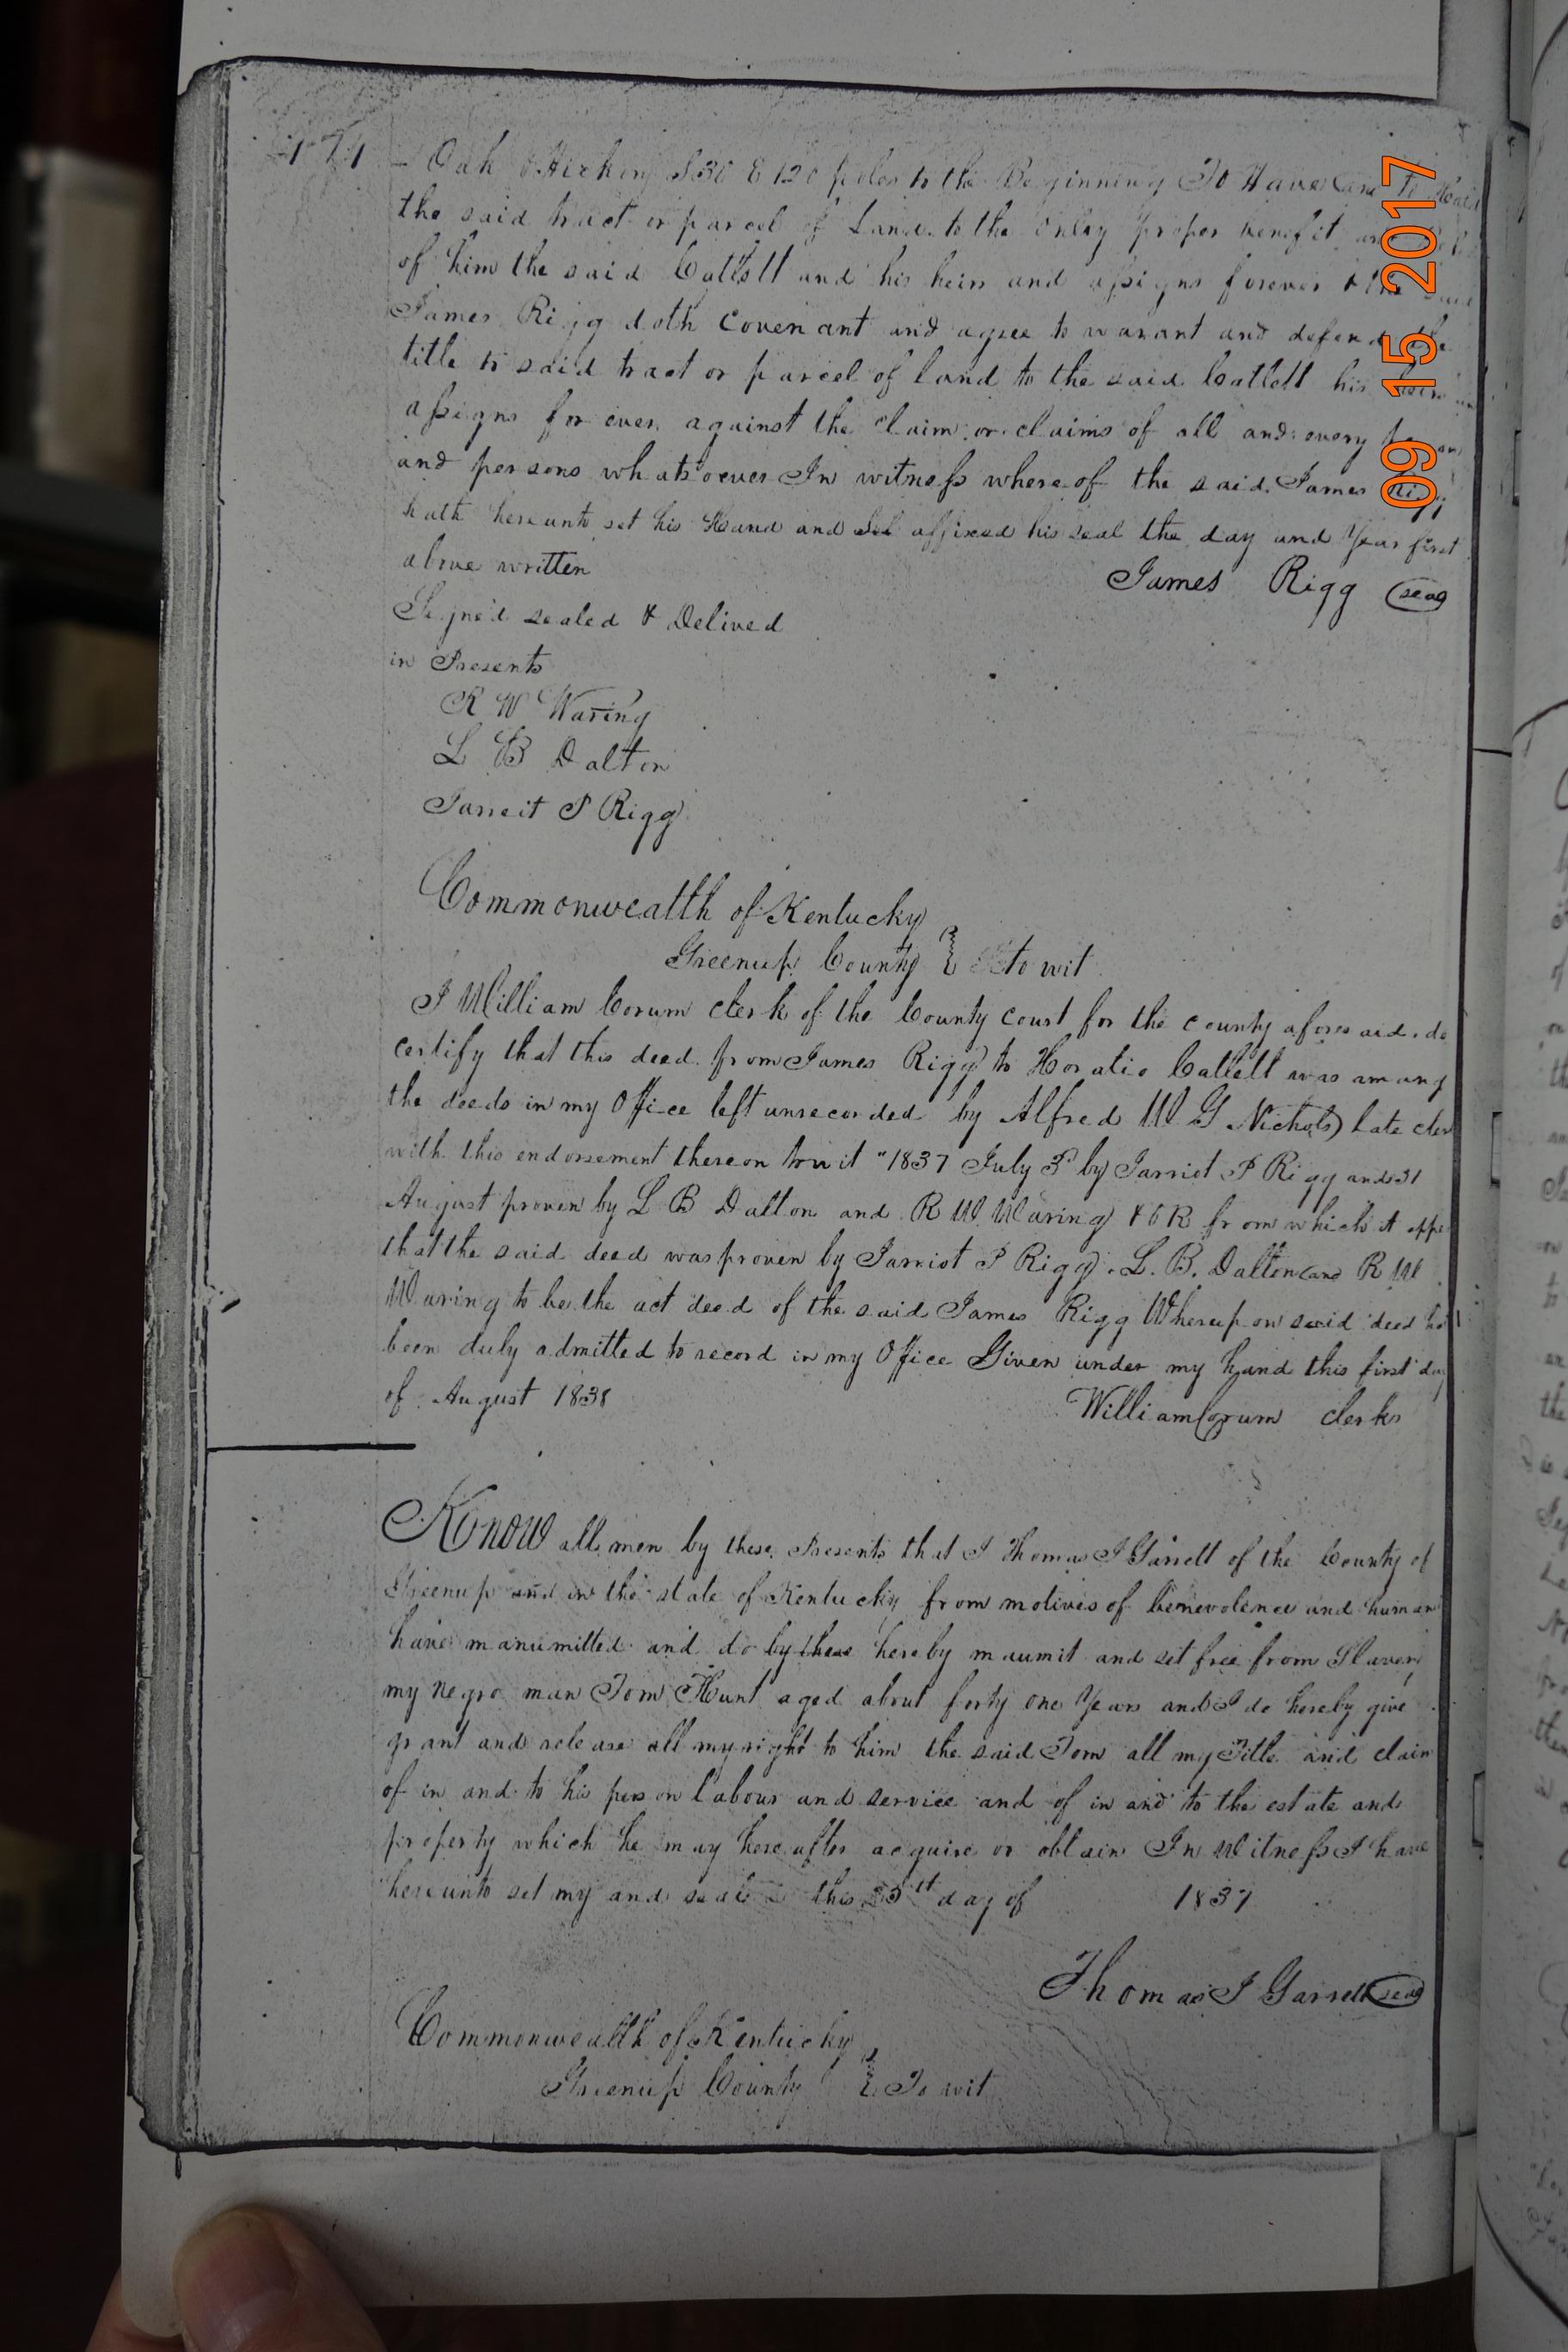 Oak & Hickory S 30 E 120 poles to the Beginning To Have and to Hold
the said tract or parcel of Land to the only proper benefit and
of him the said Catlett and his heirs and assigns forever & the said
James Rigg doth covenant and agree to warant and defend the
title to said tract or parcel of land to the said Catlett his heirs
assigns for ever against the claim or claims of all and every person
and persons whatsoever In witness whereof the said James Rigg
hath hereunto set his Hand and affixed his seal the day and Year first
above written James Rigg seal
Signed sealed & Delived
in Presents
R W Waring
L B Dalton
Jarreit P Rigg
Commonwealth of Kentucky
Greenup County to wit
I William Corum clerk of the County court for the county aforesaid do
certify that this deed from James Rigg to Horatio Catlett was among
the deeds in my Office left unrecorded by Alfred W G Nichols late cler
with this endorsement thereon towit "1837 July 3 by Jarriot P Rigg and 31
August proven by L B Dalton and R W Waring & OR from which it appe
that the said deed was proven by Jarriot P Rigg. L. B. Dalton and R W
Waring to be the act deed of the said James Rigg Whereupon said deed hat
been duly admitted to record in my Office Given under my hand this first day
of August 1838 William Corum clerks
Know all men by these Presents that I Thomas J Garrett of the County of
Greenup and in the state of Kentucky from motives of benevolence and human
have manumitted and do by these hereby maumit and set free from Slavery
my negro man Tom Hunt aged about forty one Years and I do hereby give
grant and release all my right to him the said Tom all my Title and claim
of in and to his person labour and service and of in and to the estate and
property which he may hereafter acquire or obtain In Witness I have
hereunto set my and seal this 25th day of 1837
Thomas J Garrett seal
Commonwealth of Kentucky
Greenup County To wit
09 15 2017